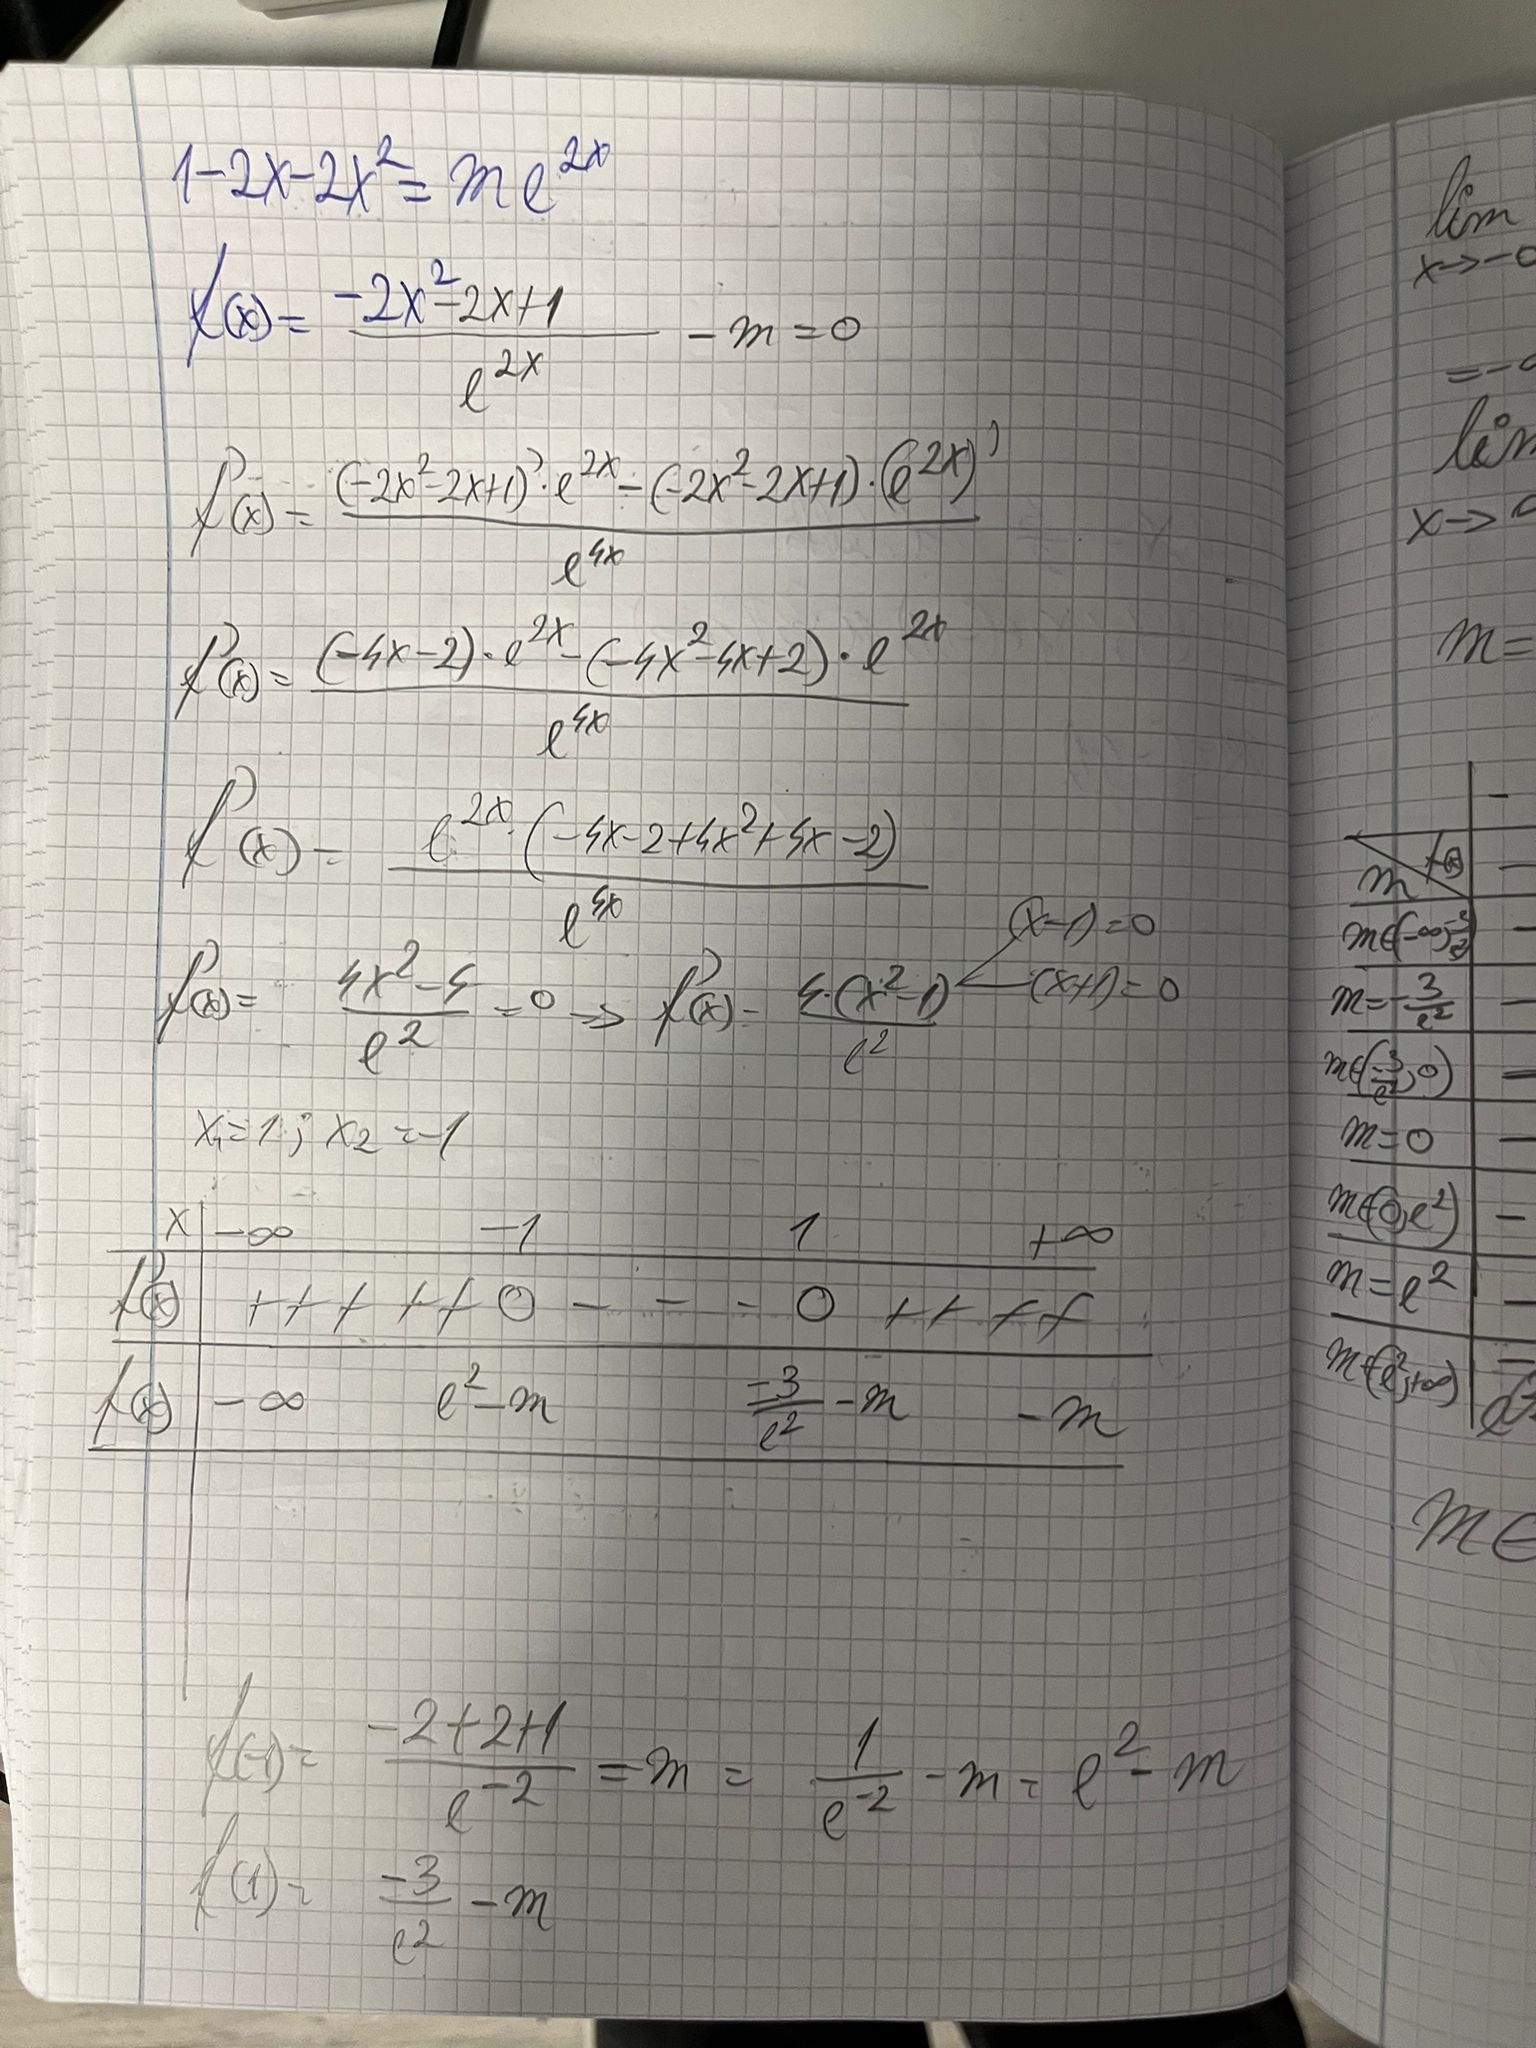 1-2x-2x² = m e^{2x}
f(x) = (-2x²-2x+1)/e^{2x} - m = 0
f'(x) = ((-2x²-2x+1)'·e^{2x} - (-2x²-2x+1)·(e^{2x})')/e^{4x}
f'(x) = ((-4x-2)·e^{2x} - (-4x²-4x+2)·e^{2x})/e^{4x}
f'(x) = e^{2x}·(-4x-2+4x²+4x-2)/e^{4x}
f'(x) = (4x²-4)/e² = 0 => f'(x) = 4·(x²-1)/e² (x-1)=0 (x+1)=0
x₁=1; x₂=-1
x | -∞ -1 1 +∞
f'(x) | + + + + + 0 - - - 0 + + + +
f(x) | -∞ e²-m -3/e² - m -m
f(-1) = (-2+2+1)/e^{-2} = m = 1/e^{-2} - m = e² - m
f(1) = -3/e² - m
lim
x→-
=-
lim
x→
m=
m f(x) -
m∈(-∞; -3/e²) -
m=-3/e² -
m∈(-3/e²; 0) -
m=0 -
m∈(0; e²) -
m=e² -
m∈(e²; +∞) -
m∈